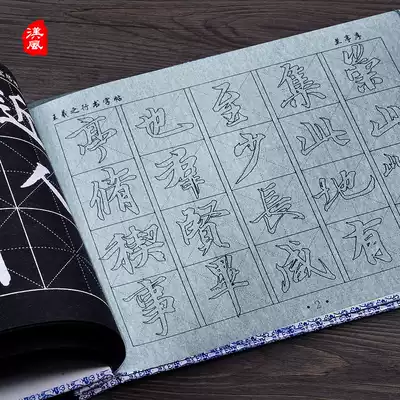 漢風
王羲之行书字帖
兰亭序
亭脩禊事
也羣賢畢
至少長咸
集此地有
崇山
2